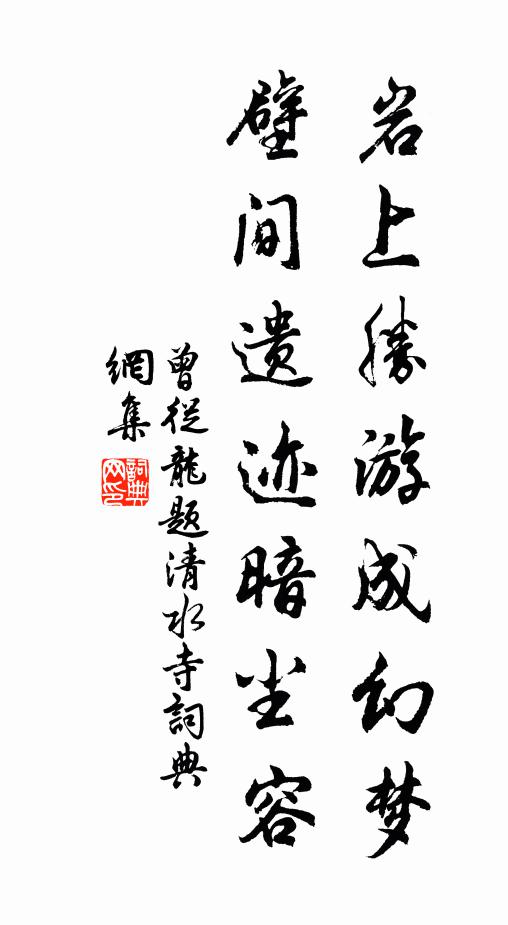 岩上胜游成幻梦
壁间遗迹暗尘容
曾從龍題清水寺詞典
網集
詞典
网印